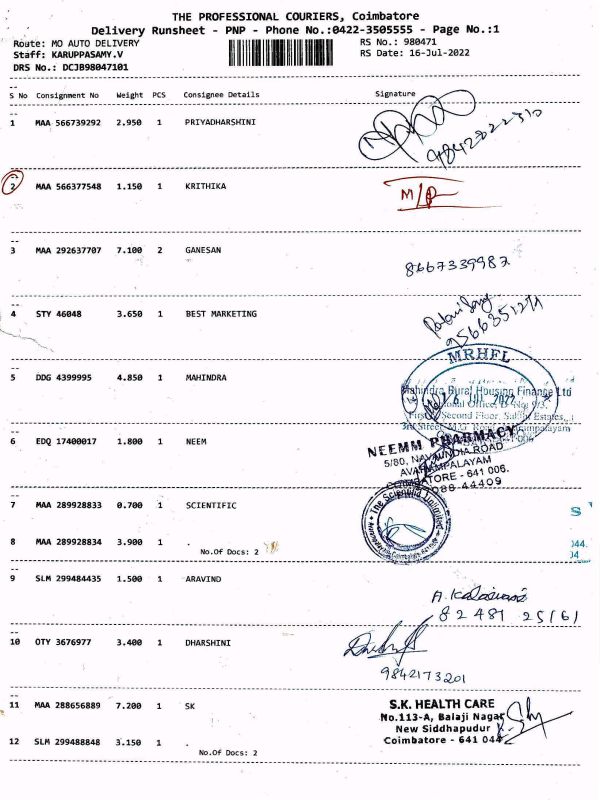 THE PROFESSIONAL COURIERS, Coimbatore
Delivery Runsheet - PNP - Phone No.:0422-3505555 - Page No.:1
Route: MO AUTO DELIVERY
RS No.: 980471
Staff: KARUPPASAMY.V
RS Date: 16-Jul-2022
DRS No.: DCJB98047101
S No Consignment No Weight PCS Consignee Details Signature
1 MAA 566739292 2.950 1 PRIYADHARSHINI
2 MAA 566377548 1.150 1 KRITHIKA
3 MAA 292637707 7.100 2 GANESAN
8667339987
4 STY 46048 3.650 1 BEST MARKETING
MRHFL
5 DDG 4399995 4.850 1 MAHINDRA
Mahindra Rural Housing Finance Ltd
Second Floor,
6 EDQ 17400017 1.800 1 NEEM
NEEMM PHARMACY
5/80, NAVAINDIA ROAD
AVARAMPALAYAM
COIMBATORE - 641 006.
7 MAA 289928833 0.700 1 SCIENTIFIC
The Scientific
8 MAA 289928834 3.900 1 .
No.Of Docs: 2
9 SLM 299484435 1.500 1 ARAVIND
82481 25161
10 OTY 3676977 3.400 1 DHARSHINI
9842173201
11 MAA 288656889 7.200 1 SK
S.K. HEALTH CARE
No.113-A, Balaji Nagar
New Siddhapudur
Coimbatore - 641 044
12 SLM 299488848 3.150 1 .
No.Of Docs: 2